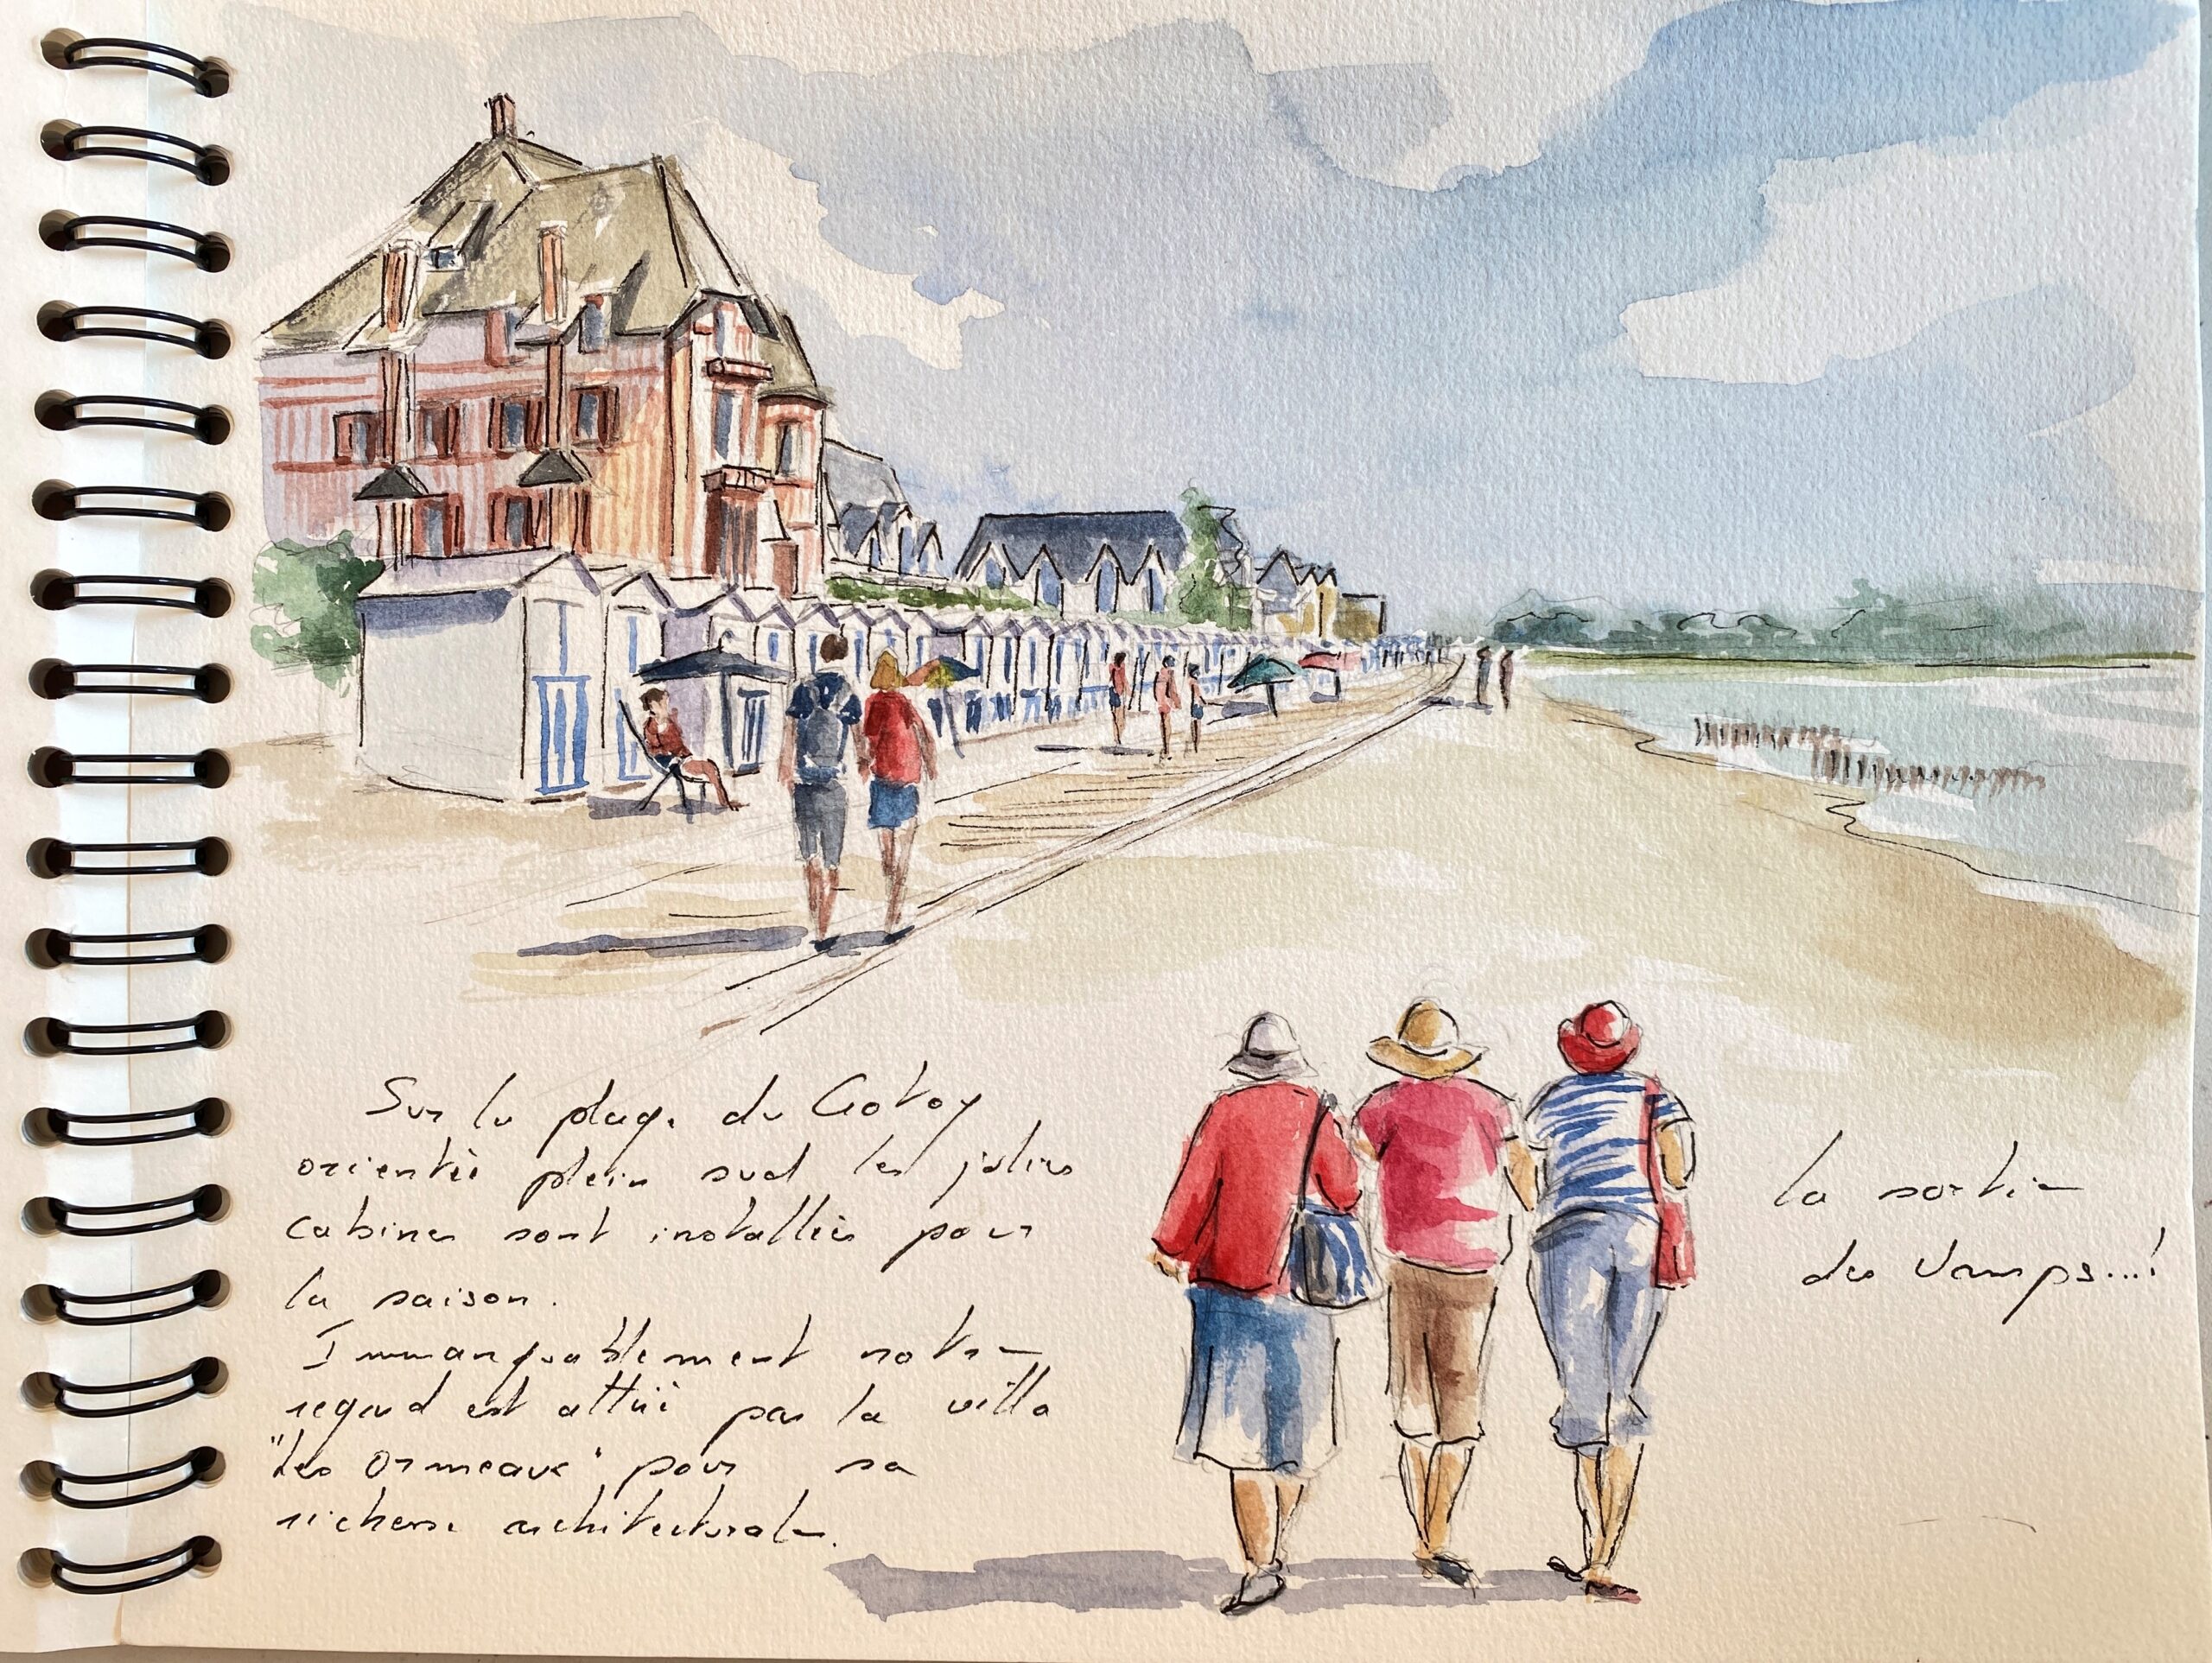 Sur la plage du Crotoy
orientée plein sud les jolies
cabines sont installées pour
la saison.
Immanquablement notre
regard est attiré par la villa
"Les Ormeaux" pour sa
richesse architecturale.
la sortie
des Vamps...!